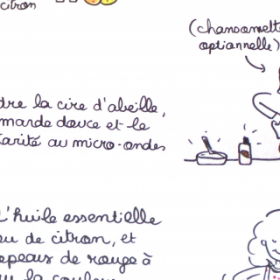 citron
(chansonnette
optionnelle)
dre la cire d'abeille,
mande douce et le
arité au micro-ondes
l'huile essentielle
eu de citron, et
epeaux de rouge à